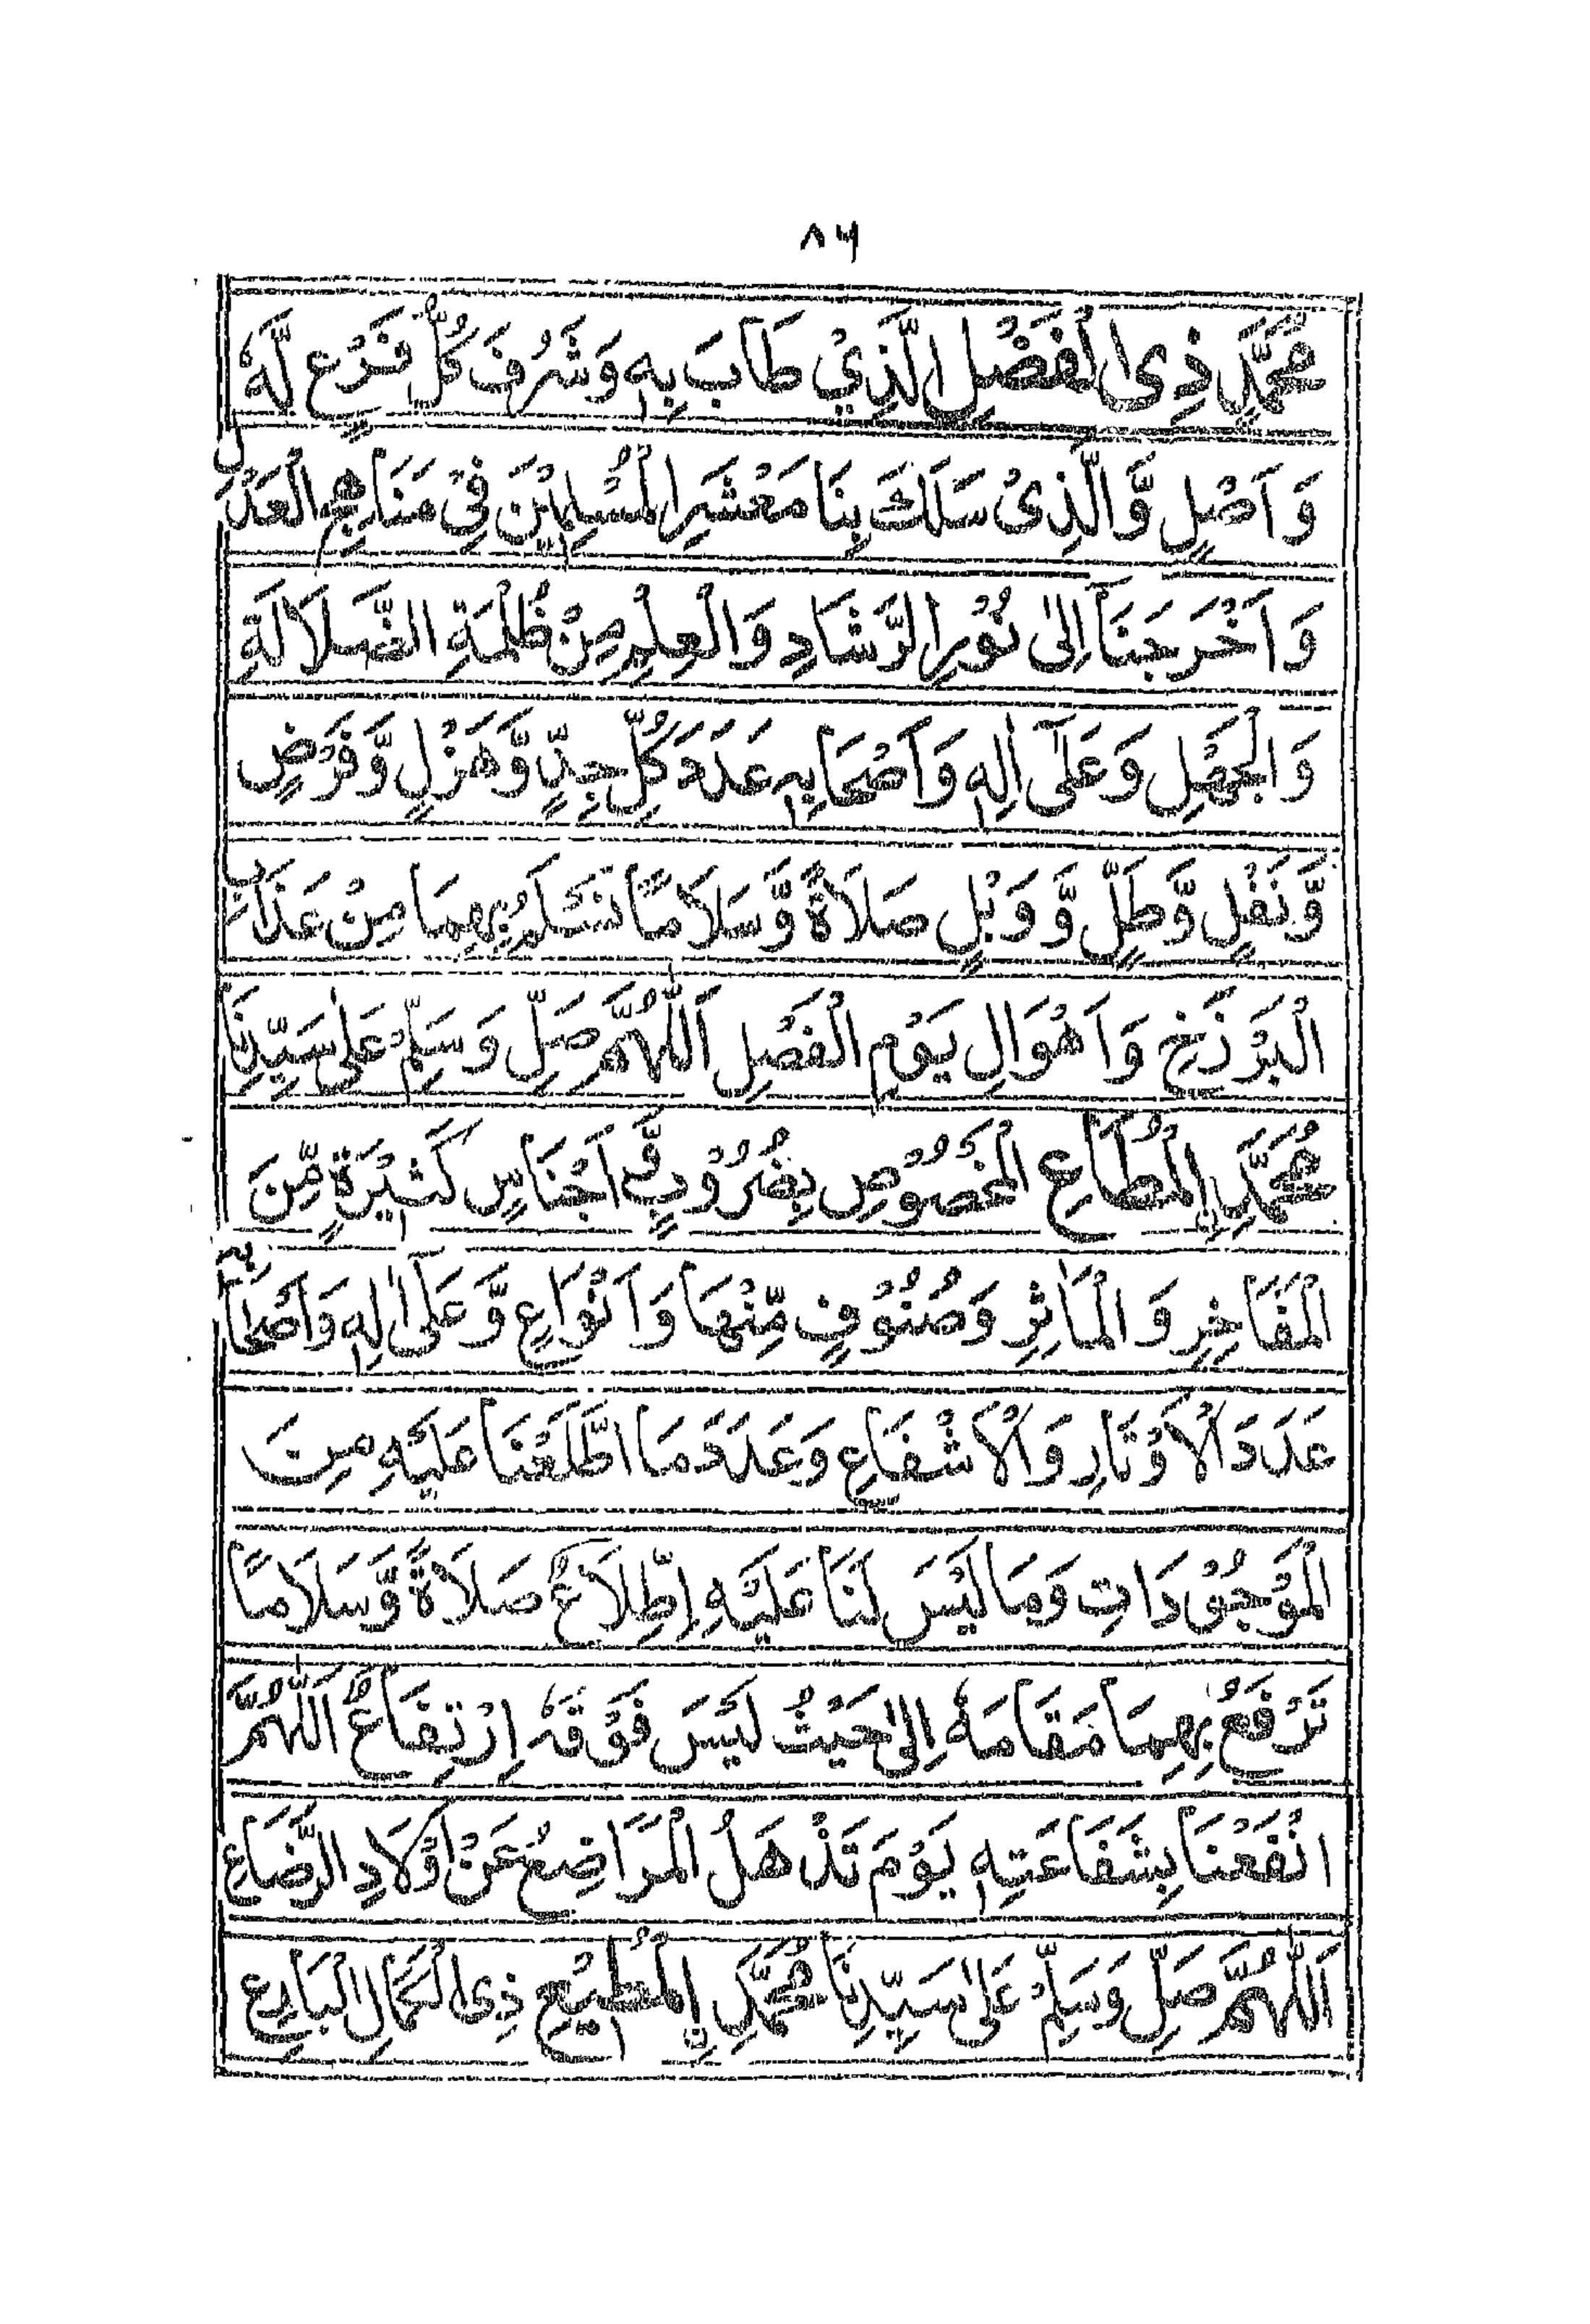 ٨٦
مُحَمَّدٍ ذِى الْفَضْلِ الَّذِيْ طَابَ بِهٖ وَشَرُفَ كُلُّ فَرْعٍ لَّهٗ
وَاَصْلٍ وَّالَّذِىْ سَلَكَ بِنَا مَعْشَرَ الْمُسْلِمِيْنَ فِىْ مَنَاهِجِ الْعَدْلِ
وَاَخْرَجَنَآ اِلٰى نُوْرِ الرَّشَادِ وَالْعِلْمِ مِنْ ظُلْمَةِ الضَّلَالَةِ
وَالْجَهْلِ وَعَلٰٓى اٰلِهٖ وَاَصْحَابِهٖ عَدَدَ كُلِّ جِدٍّ وَّهَزْلٍ وَّفَرْضٍ
وَّنَفْلٍ وَّطَلٍّ وَّوَبْلٍ صَلَاةً وَّسَلَامًا نَسْلَمُ بِهِمَا مِنْ عَذَابِ
الْبَرْزَخِ وَاَهْوَالِ يَوْمِ الْفَصْلِ اَللّٰهُمَّ صَلِّ وَسَلِّمْ عَلٰى سَيِّدِنَا
مُحَمَّدِ نِ الْمُطَاعِ الْمَخْصُوْصِ بِضُرُوْبٍ وَّاَجْنَاسٍ كَثِيْرَةٍ مِّنَ
الْمَفَاخِرِ وَالْمَاٰثِرِ وَصُنُوْفٍ مِّنْهَا وَاَنْوَاعٍ وَّعَلٰٓى اٰلِهٖ وَاَصْحَابِهٖ
عَدَدَ الْاَوْتَارِ وَالْاَشْفَاعِ وَعَدَدَ مَا اطَّلَعْنَا عَلَيْهِ مِنَ
الْمَوْجُوْدَاتِ وَمَا لَيْسَ لَنَا عَلَيْهِ اِطِّلَاعٌ صَلَاةً وَّسَلَامًا
تَرْفَعُ بِهِمَا مَقَامَهٗ اِلٰى حَيْثُ لَيْسَ فَوْقَهٗ اِرْتِفَاعٌ اَللّٰهُمَّ
انْفَعْنَا بِشَفَاعَتِهٖ يَوْمَ تَذْهَلُ الْمَرَاضِعُ عَنْ اَوْلَادِ الرَّضَاعِ
اَللّٰهُمَّ صَلِّ وَسَلِّمْ عَلٰى سَيِّدِنَا مُحَمَّدِ نِ الْمُطِيْعِ ذِى الْكَمَالِ الْبَارِعِ